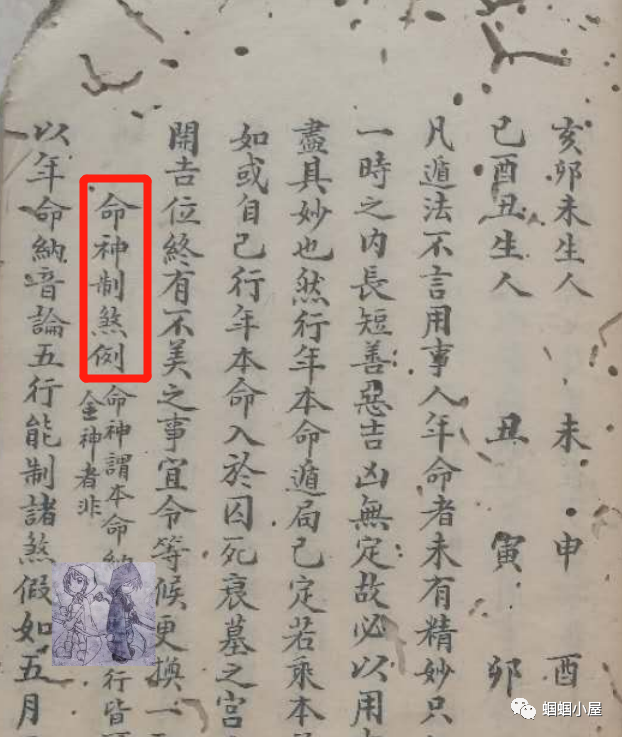 亥卯未生人　未　申　酉
巳酉丑生人　丑　寅　卯
凡遁法不言用事人年命者未有精妙只
一時之内長短善惡吉凶無定故必以用
盡其妙也然行年本命遁局已定若乘本
如或自己行年本命入於囚死衰墓之宮
開吉位終有不美之事宜令等候更換一
命神制煞例
命神謂本命納
行皆
金神者非
以年命納音論五行能制諸煞假如五月
蝈蝈小屋